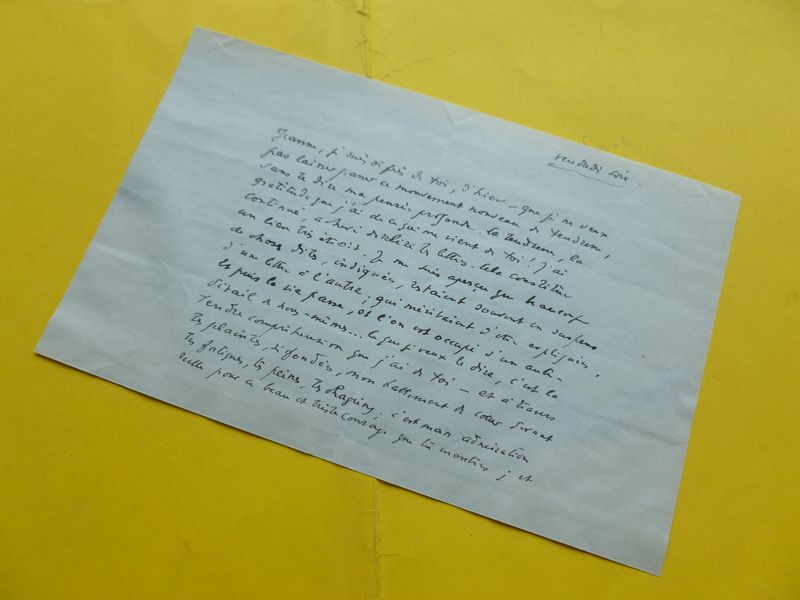 vendredi soir.
Jeanne, je suis si près de toi, d'hier que je ne veux
pas laisser passer ce mouvement nouveau de tendresse,
sans te dire ma pensée profonde. La tendresse, la
gratitude que j'ai de ce qui me vient de toi ! J'ai
continué, achevé de relire tes lettres. Cela constitue
un lien très étroit. Je me suis aperçu que
de choses dites, indiquées, restaient souvent en suspens
d'une lettre à l'autre ; qui méritaient d'être expliquées,
et puis la vie passe, et l'on est occupé d'un autre
détail de nous-mêmes... Ce que je veux te dire, c'est la
tendre compréhension que j'ai de toi — et à travers
tes plaintes, si fondées, mon battement de cœur devant
tes fatigues, tes peines, tes chagrins ; c'est mon admiration
réelle pour ce beau et triste courage que tu montres ; et